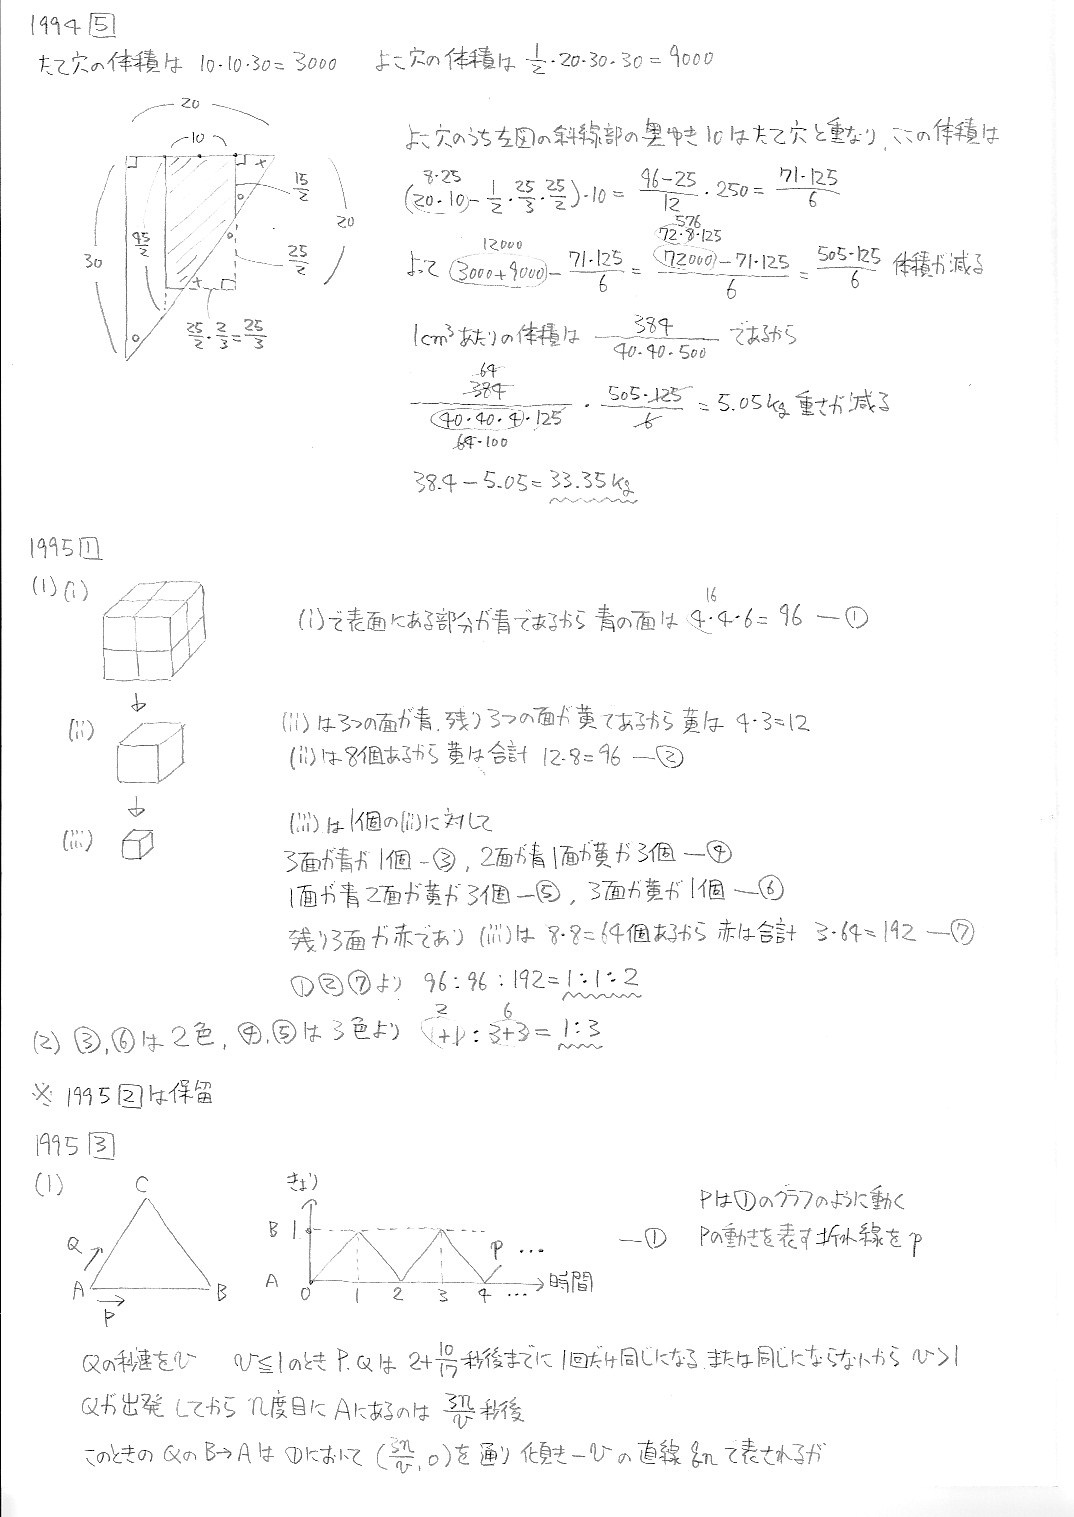 1994 5
たて穴の体積は 10・10・30=3000 よこ穴の体積は 1/2・20・30・30=9000
20
10
15/2
20
45/2
30
25/2
25/2・2/3=25/3
よこ穴のうち左図の斜線部の奥ゆき10はたて穴と重なり、ここの体積は
8・25
(20・10-1/2・25/3・25/2)・10=96-25/12・250=71・125/6
576
12000 72・8・125
よって (3000+9000)-71・125/6=72000-71・125/6=505・125/6 体積が減る
1cm³あたりの体積は 384/40・40・500 であるから
64
384/40・40・4・125・505・125/6=5.05kg 重さが減る
64・100
38.4-5.05=33.35kg
1995 1
(1)(i)
16
(i)で表面にある部分が青であるから 青の面は 4・4・6=96 ―①
(ii)
(ii)は3つの面が青、残り3つの面が黄であるから黄は 4・3=12
(ii)は8個あるから黄は合計 12・8=96 ―②
(iii)
(iii)は1個の(ii)に対して
3面が青が1個―③, 2面が青1面が黄が3個―④
1面が青2面が黄が3個―⑤, 3面が黄が1個―⑥
残り3面が赤であり (iii)は 8・8=64個あるから 赤は合計 3・64=192 ―⑦
①②⑦より 96:96:192=1:1:2
2 6
(2) ③,⑥は2色, ④,⑤は3色より 1+1:3+3=1:3
※ 1995 2 は保留
1995 3
(1)
C
Q
A
B
P
きょり
B 1
A
0 1 2 3 4 …
P …
時間
―①
Pは①のグラフのように動く
Pの動きを表す折れ線をp
Qの秒速をv v≦1のとき P,Qは 2+10/17秒後までに1回だけ同じになる または同じにならないから v>1
Qが出発してから n度目に Aにあるのは 3n/v 秒後
このときの QのB→Aは ①において (3n/v,0)を通り 傾き-v の直線 qn で表されるが